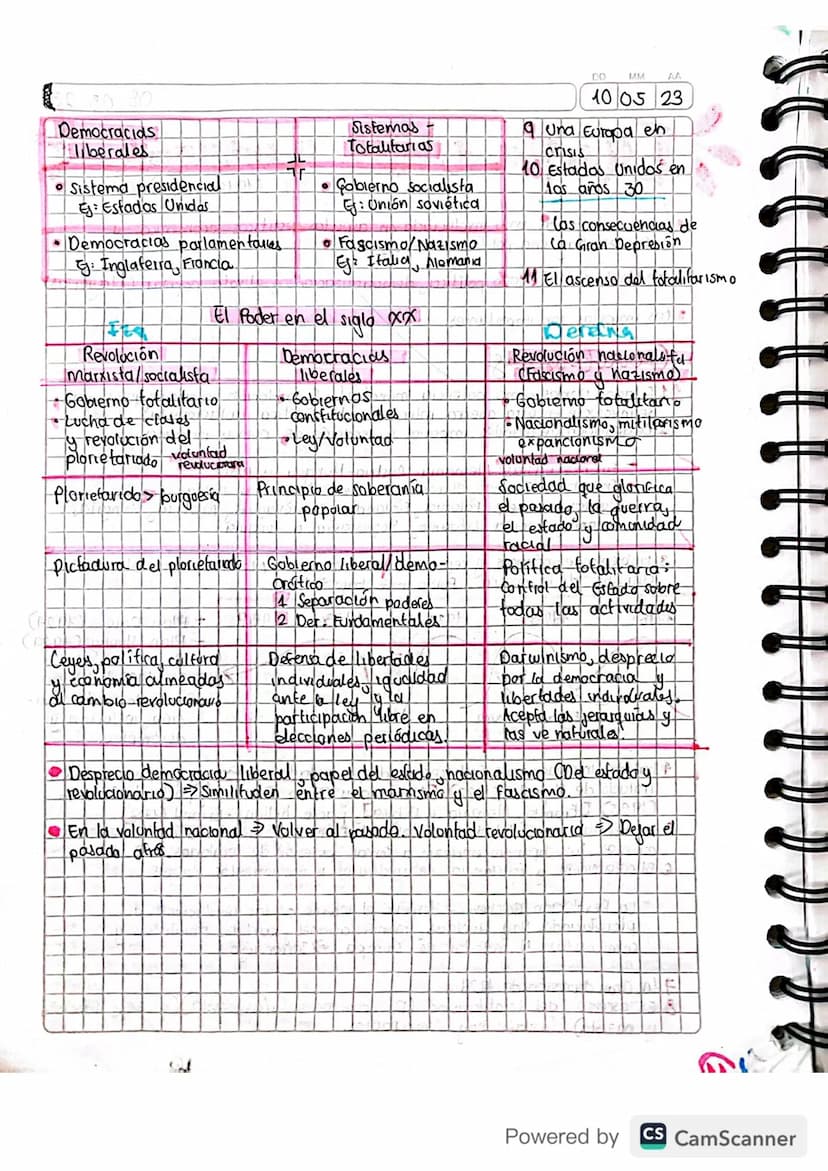 DD MM AA
10 05 23
Democracias
liberales
Sistemas -
Totalitarias
• Sistema presidencial
Ej: Estados Unidos
• Gobierno socialista
Ej: Unión soviética
• Democracias parlamentares
Ej: Inglaterra, Francia
• Fascismo/Nazismo
Ej: Italia, Alemania
9 Una Europa en
crisis
10 Estados Unidos en
los años 30
• Las consecuencias de
La Gran Depresión
11 El ascenso del totalitarismo
El Poder en el siglo XX
Izq
Derecha
Revolución
marxista/socialista
• Gobierno totalitario
• Lucha de clases
y revolución del
plorietariado voluntad
revolucionaria
Democracias
liberales
• Gobiernos
constitucionales
• Ley/Voluntad
Revolución nacionalista
(Fascismo y nazismo)
• Gobierno totalitario
• Nacionalismo, mitilarismo
expancionismo
voluntad nacional
Plorietariado > burguesía
Principio de soberanía
popular
Sociedad que glorifica
el pasado, la guerra,
el estado y comunidad
racial
Dictadura del plorietariado
Gobierno liberal/demo-
crático
1 Separación poderes
2 Der. Fundamentales
Política totalitaria:
control del Estado sobre
todas las actividades
Leyes, política, cultura
y economía alineadas
al cambio revolucionario
Defensa de libertades
individuales, igualdad
ante la ley y la
participación libre en
elecciones periódicas.
Darwinismo, desprecio
por la democracia y
libertades individuales.
Acepta las jerarquías y
las ve naturales.
• Desprecio democracia liberal, papel del estado, nacionalismo (Del estado y
revolucionario) ⇒ Similituden entre el marxismo y el fascismo.
• En la voluntad nacional ⇒ Volver al pasado. Volontad revolucionaria ⇒ Dejar el
pasado atrás
Powered by CS CamScanner